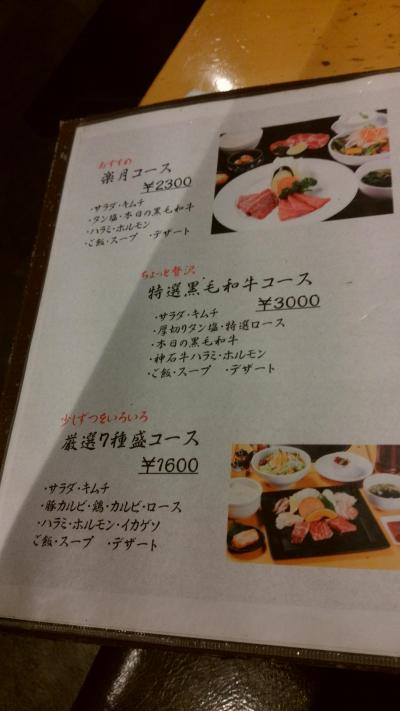 おすすめ
楽月コース
¥2300
・サラダ・キムチ
・タン塩・本日の黒毛和牛
・ハラミ・ホルモン
・ご飯・スープ ・デザート
ちょっと贅沢
特選黒毛和牛コース
¥3000
・サラダ・キムチ
・厚切りタン塩・特選ロース
・本日の黒毛和牛
・神石牛ハラミ・ホルモン
・ご飯・スープ ・デザート
少しずつをいろいろ
厳選7種盛コース
¥1600
・サラダ・キムチ
・豚カルビ・鶏・カルビ・ロース
・ハラミ・ホルモン・イカゲソ
ご飯・スープ ・デザート